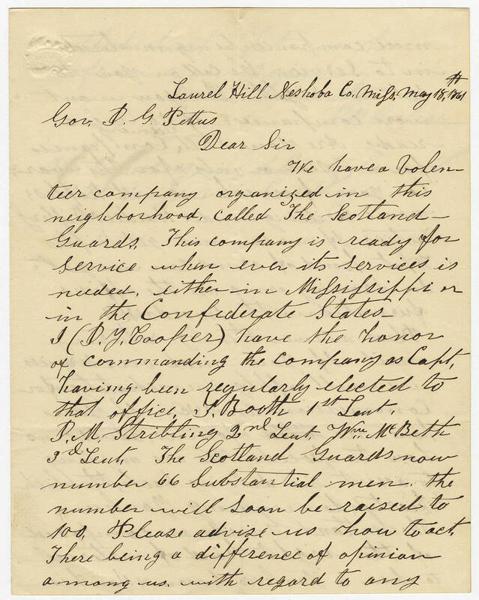 Laurel Hill Neshoba Co. Miss. May 18th, 1861
Gov. P. G. Pettus
Dear Sir
We have a Volen-
tier company organized in this
neighborhood, called The Scotland-
Guards. This company is ready for
service when ever its services is
needed, either in Mississippi or
in the Confederate States
I (D. Y. Cooper) have the honor
of commanding the company as Capt,
having been regularly elected to
that office, S. Booth 1st Leut.
P. M. Stribling 2nd Leut. Wm McBeth
3d Leut. The Scotland Guards now
number 66 substantial men. the
number will soon be raised to
100. Please advise us how to act.
There being a difference of opinion
among us, with regard to any